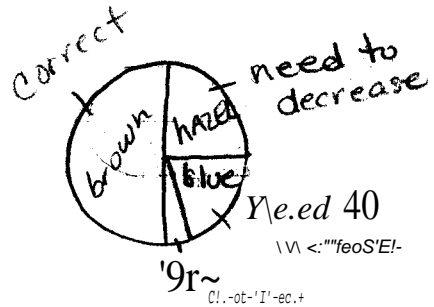 correct
need to
decrease
brown
hAZEL
blue
Y\e.ed 40
\ V\ <:""feoS'E!-
'9r~
C!.-ot-'I'-ec.+